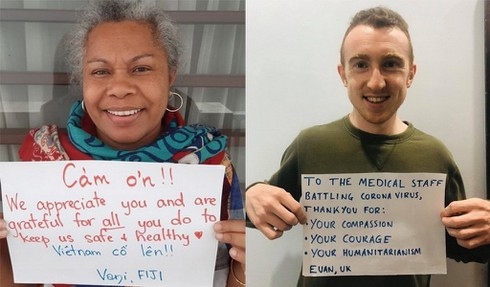 Cảm ơn!!
We appreciate you and are
grateful for all you do to
keep us safe & healthy ♥
Việtnam cố lên!!
Vani, FIJI
TO THE MEDICAL STAFF
BATTLING CORONAVIRUS,
THANKYOU FOR:
• YOUR COMPASSION
• YOUR COURAGE
• YOUR HUMANITARIANISM
EUAN, UK